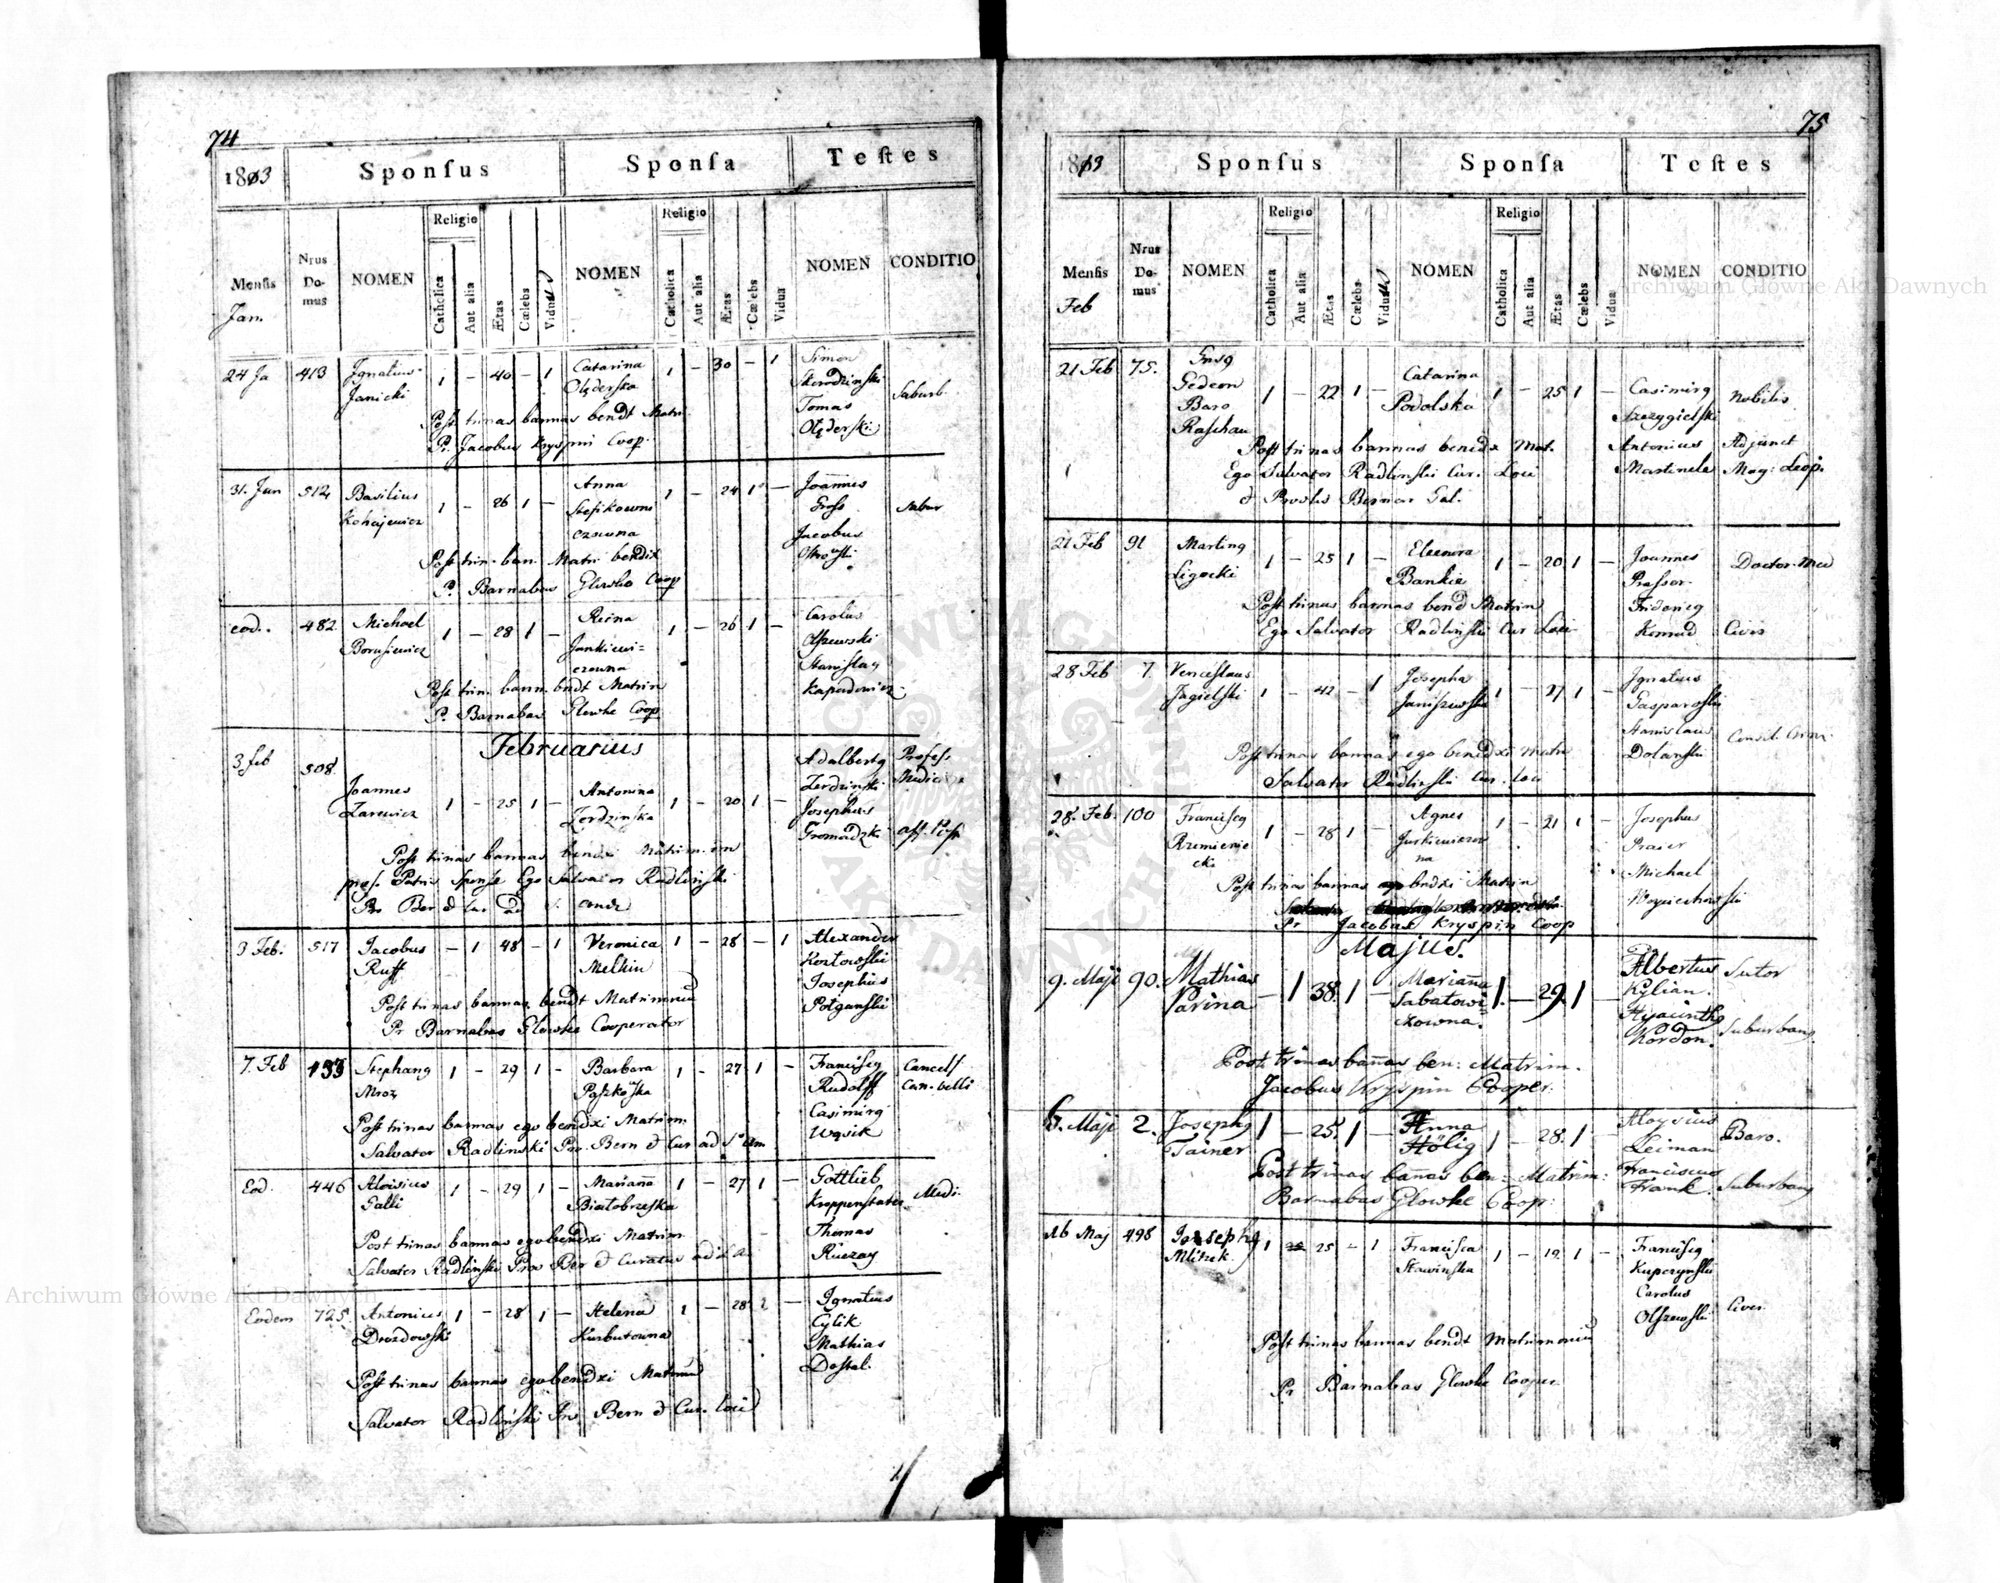 74
1803 Sponſus Sponſa Teſtes
Menſis Nrus Domus NOMEN Religio Catholica Aut alia Ætas Cælebs Viduus NOMEN Religio Catholica Aut alia Ætas Cælebs Vidua NOMEN CONDITIO
Jan.
24 Ja 413 Ignatius 1 – 40 – 1 Catarina 1 – 30 – 1 Simon
Janicki Olęderska Skrodzinski Saburb.
Post trinas bannas bendt Matri Tomas
Pr. Jacobus Kryspin Coop. Olęderski
31. Jan 512 Basilius 1 – 26 1 – Anna 1 – 24 1 – Joannes
Stefikowni Groſs Subur
czowna Jacobus
Post trin. ban. Matri bendix
P. Barnabas Glowke Coop
eod. 482 Michael 1 – 28 1 – Reina 1 – 26 1 – Carolus
Borusiewicz Jankiewi= Olszewski
czowna Stanislaq
Post trin. bann. bndt Matrim Kapudowicz
P. Barnabas Glowke Coop
Februarius
3 feb 508. Adalbertq Profeſs.
Joannes 1 – 25 1 – Antonina 1 – 20 1 – Zerdzinski Medici
Zarewicz Zerdzinska Josephus
Gromadzk
Post trinas bannas bendxi Matrim. im
præs. Patris Sponsæ Ego Salvator Radlinski
3 Feb. 517 Jacobus – 1 48 – 1 Veronica 1 – 28 – 1 Alexander
Ruff Melhin Kozłowski
Josephus
Post trinas bannas bendt Matrimoniũ Potganski
Pr Barnabas Glowke Cooperator
7. Feb 433 Stephanq 1 – 29 1 – Barbara 1 – 27 1 – Franciſcq Cancelſ
Mroz Paszkowska Rudolff
Casimirq
Post trinas bannas ego bendxi Matrim. Wąsik
Salvator Radlinski Pr. Bern & Cur ad S. Am
Eod. 446 Aloisius 1 – 29 1 – Marianna 1 – 27 1 – Gottlieb
Galli Białobrzeska Kroppenstater Medi.
Post trinas bannas ego bendxi Matrim Thomas
Salvator Radlinski Prov Ber & Curatus ad S. A
Eodem 725. Antonius 1 – 28 1 – Helena 1 – 28 1 – Ignatius
Drozdowski Kurbutowna Cylik
Mathias
Post trinas bannas ego bendxi Matrim Dostal.
Salvator Radliński Prv. Bern & Cur. loci
75
1803 Sponſus Sponſa Teſtes
Menſis Nrus Domus NOMEN Religio Catholica Aut alia Ætas Cælebs Viduus NOMEN Religio Catholica Aut alia Ætas Cælebs Vidua NOMEN CONDITIO
Feb
21 Feb 75.
Gedeon 1 – 22 1 – Catarina 1 – 25 1 – Casimirq Nobilis
Baro Podolska Szczygielski
Raschau
Post trinas bannas benedx Mat. Antonius Adjunct
Ego Salvator Radlinski Cur. Loci Martinele Mag: Leop.
21 Feb 91 Martinq 1 – 25 1 – Eleonora 1 – 20 1 – Joannes Doctor. Med
Ligocki Bankie Prasser
Post trinas bannas bend Matrim Fridericq
Ego Salvator Radlinski Cur Loci Konrad Civis
28 Feb 7. Venceslaus 1 – 42 – 1 Josepha 1 – 27 1 – Ignatius
Jagielski Janiszewska Gasparoski
Stanislaus
Post trinas bannas ego benedxi matri Dolanski
Salvator Radlinski Cur. loci
28. Feb. 100 Franciſcq 1 – 28 1 – Agnes 1 – 21 1 – Josephus
Rzmienie Jurkiewiczow Praier
cki na Michael
Post trinas bannas bndxi Matrim Woyciechowski
Pr Jacobus Kryspin Coop
Majus.
9. Maji 90. Mathias – 1 38. 1 – Marianna 1. – 29. 1 – Albertus Sutor
Parina Sabatowi= Kylian.
czowna. Hyacinthq Suburbanq
Kordon.
Post trinas bannas ben: Matrim.
Jacobus Kryspin Cooper.
Maji 2. Josephq 1 – 25. 1 – Anna 1 – 28. 1 – Aloysius Baro.
Tainer Hölig Leiman
Post trinas bannas ben: Matrim: Franciscus Suburbanq
Barnabas Glowke Coop: Frank.
16 Maj 498 Josephq 1 25 – 1 Francisca 1 – 19. 1 – Franciſcq
Mlinek. Stawinska Kupczynski
Carolus Civer
Olszewski
Post trinas bannas bendt Matrimoniũ
Pr Barnabas Glowke Cooper.
Archiwum Główne Akt Dawnych
Archiwum Główne Akt Dawnych
ARCHIWUM GŁÓWNE AKT DAWNYCH